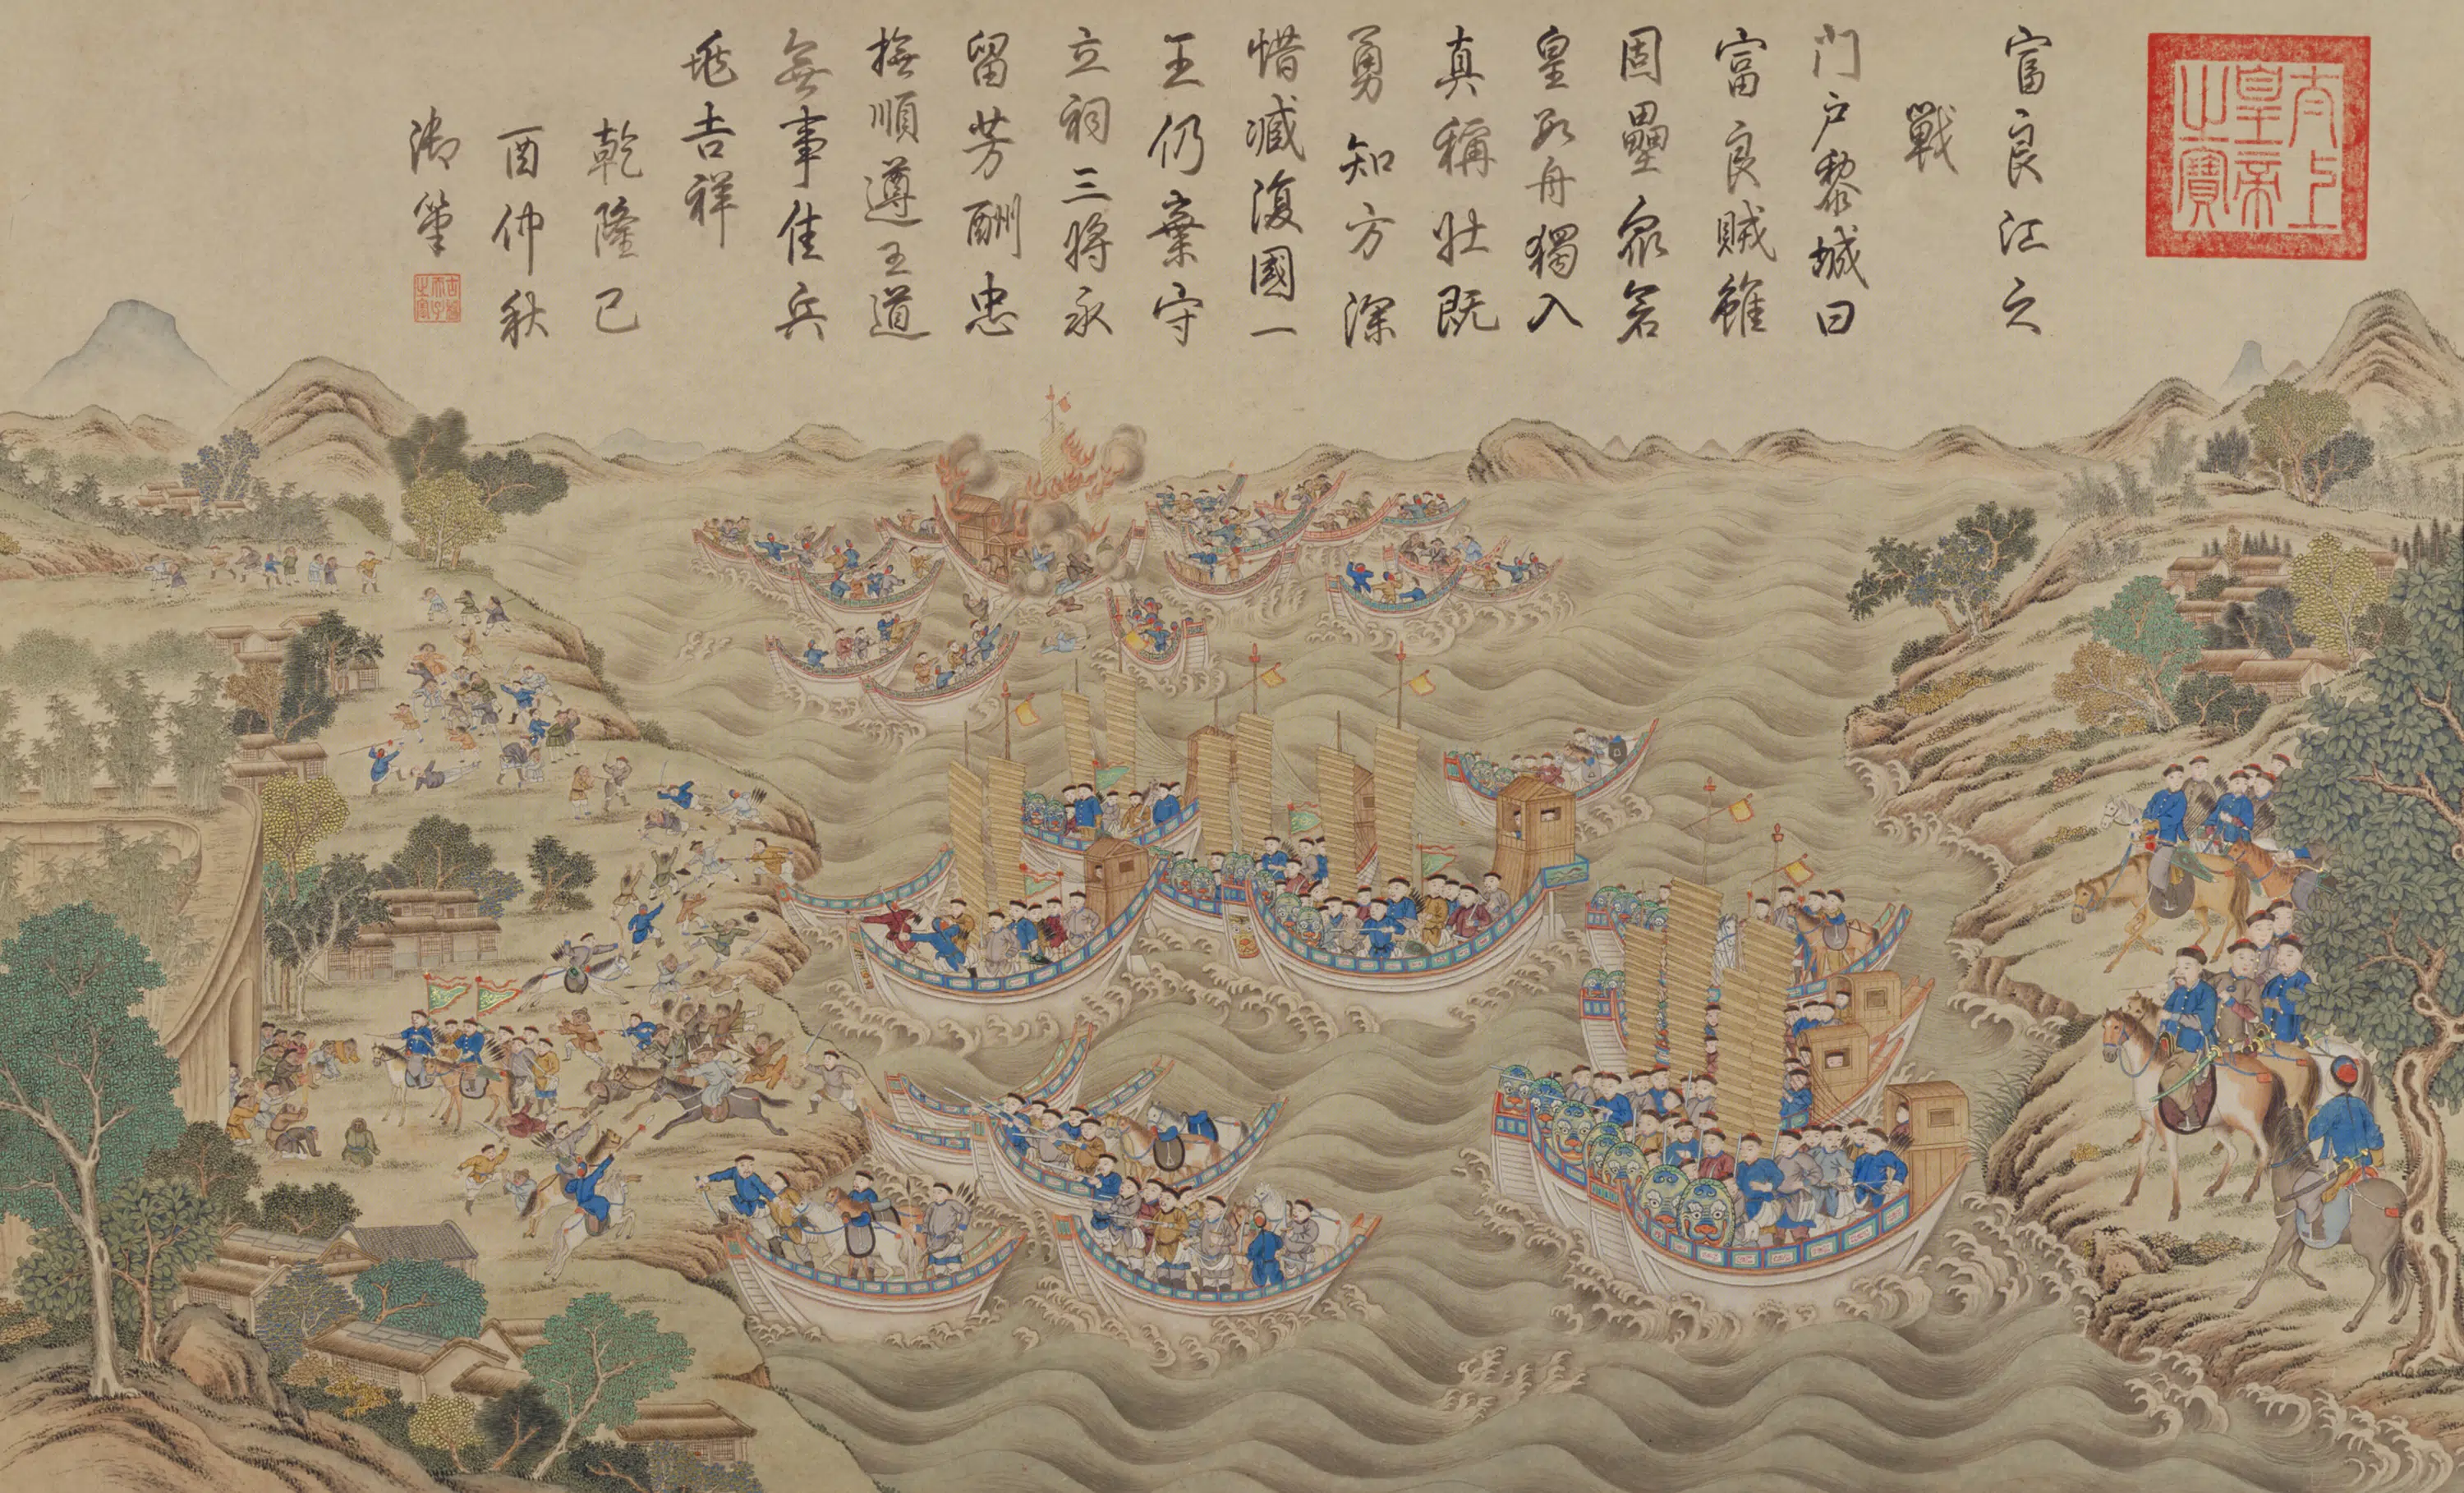 太上
皇帝
之寶
富良江之
戰
門户黎城曰
富良賊雖
固壘衆若
皇數舟獨入
真稱壯既
勇知方深
惜臧復國一
王仍棄守
立祠三將永
留芳酬忠
撫順遵王道
無事佳兵
吉祥
乾隆己
酉仲秋
御筆
古稀
天子
之寶